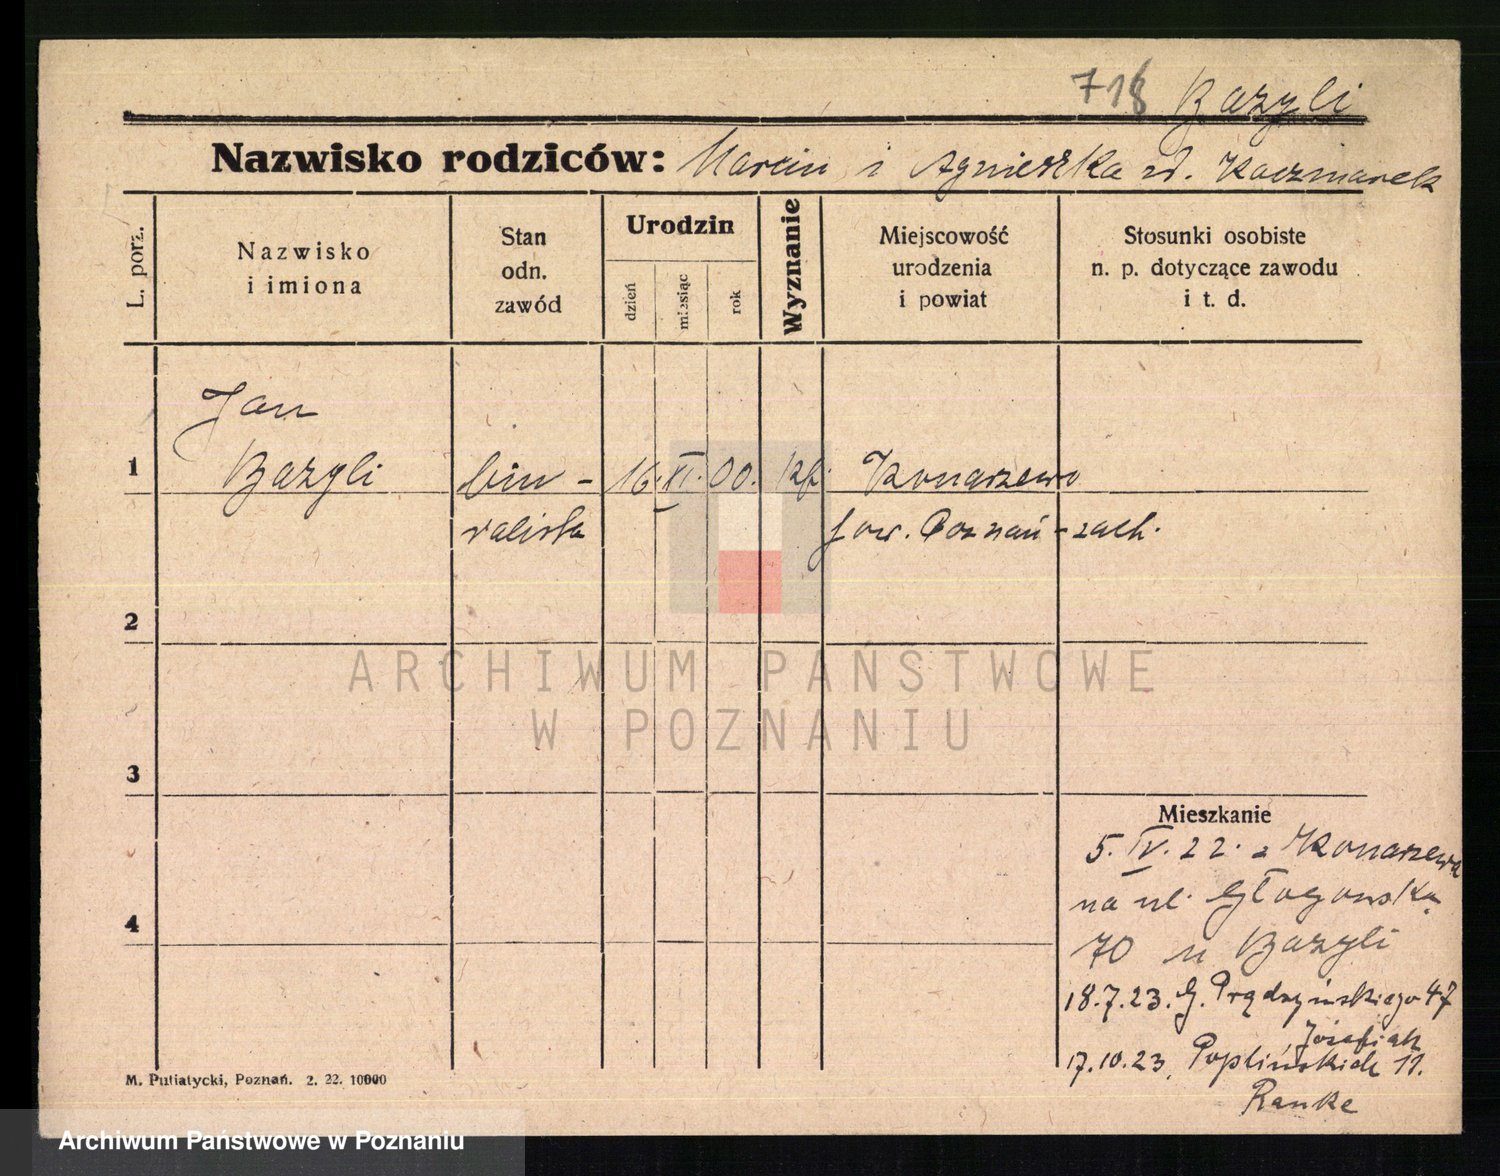 718 Bazyli
Nazwisko rodziców: Marcin i Agnieszka zd. Kaczmarek
L. porz.
Nazwisko
i imiona
Stan
odn.
zawód
Urodzin
dzień
miesiąc
rok
Wyznanie
Miejscowość
urodzenia
i powiat
Stosunki osobiste
n. p. dotyczące zawodu
i t. d.
Jan
1 Bazyli biu- 16. XI. 00. Konarzewo
ralista pow. Poznań-zach.
2
3
4
ARCHIWUM PAŃSTWOWE
W POZNANIU
Mieszkanie
5. IV. 22. z Konarzewa
na ul. Głogowską
70 u Bazyli
18.7.23. G. Prądzyńskiego 47
Józefiak
17.10.23. Poplińskich 11.
Ranke
M. Putiatycki, Poznań. 2. 22. 10000
Archiwum Państwowe w Poznaniu